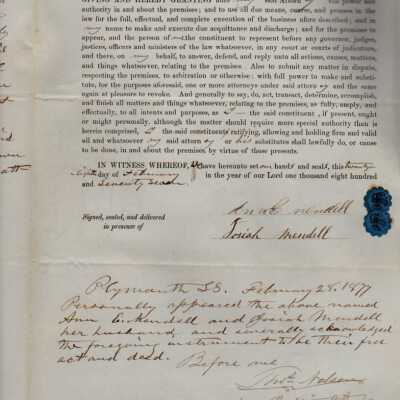 GIVING AND HEREBY GRANTING unto said Attorney full power and
authority in and about the premises; and to use all due means, course, and process in the
law for the full, effectual, and complete execution of the business afore described; and in
my name to make and execute due acquittance and discharge; and for the premises to
appear, and the person of —the constituent to represent before any governor, judges,
justices, officers and ministers of the law whatsoever, in any court or courts of judicature,
and there, on my behalf, to answer, defend, and reply unto all actions, causes, matters,
and things whatsoever, relating to the premises. Also to submit any matter in dispute,
respecting the premises, to arbitration or otherwise: with full power to make and substi-
tute, for the purposes aforesaid, one or more attorneys under said attorney and the same
again at pleasure to revoke. And generally to say, do, act, transact, determine, accomplish,
and finish all matters and things whatsoever, relating to the premises, as fully, amply, and
effectually, to all intents and purposes, as I — the said constituent, if present, ought
or might personally, although the matter should require more special authority than is
herein comprised, I the said constituent ratifying, allowing and holding firm and valid
all and whatsoever my said attorney or his substitutes shall lawfully do, or cause
to be done, in and about the premises, by virtue of these presents.
IN WITNESS WHEREOF, We have hereunto set our hands and seals, this twenty
eighth day of February in the year of our Lord one thousand eight hundred
and seventy seven
Signed, sealed, and delivered
in presence of
Ann C Mendell
Josiah Mendell
Plymouth SS. February 28. 1877
Personally appeared the above named
Ann C. Mendell and Josiah Mendell
her husband, and severally acknowledged
the foregoing instrument to be their free
act and deed.
Before me